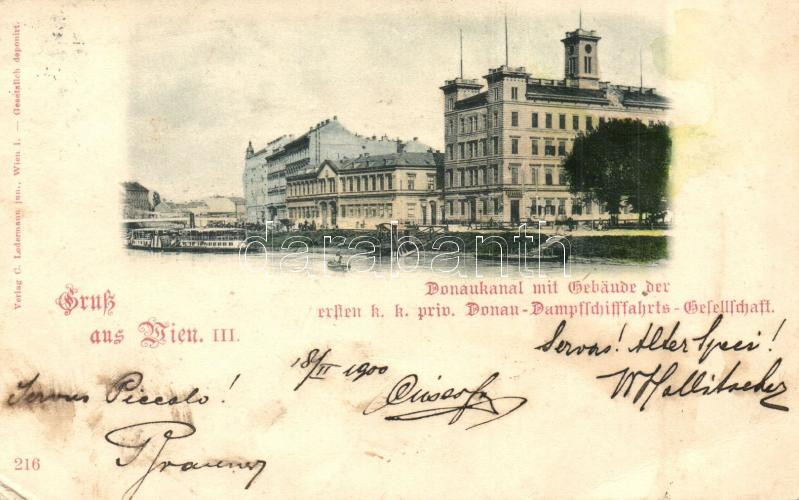 Verlag C. Ledermann jun., Wien I. — Gesetzlich deponirt.
darabanth
Donaukanal mit Gebäude der
ersten k. k. priv. Donau-Dampfschifffahrts-Gesellschaft.
Gruß
aus Wien. III.
Servus! Alter Speci!
18/II 1900
Servus Piccolo!
216